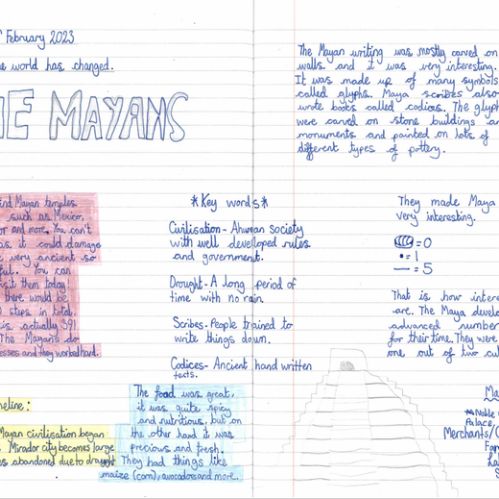 February 2023
world has changed.
THE MAYANS
Mayan temples
such as Mexico,
and more. You can't
as it could damage
very ancient so
You can
them today!
there would be
steps in total.
is actually 391
The Mayans do
and they worked hard.
Mayan civilisation began
Mirador city becomes large
abandoned due to drought
*Key words*
Civilisation- A human society
with well developed rules
and government.
Drought- A long period of
time with no rain
Scribes- People trained to
write things down.
Codices- Ancient hand written
texts.
The food was great,
it was quite spicy
and nutritious, but on
the other hand it was
precious and fresh.
They had things like
maize (corn), avocados and more.
The Mayan writing was mostly carved on
walls and it was very interesting.
It was made up of many symbols
called glyphs. Maya scribes also
wrote books called codices. The glyph
were carved on stone buildings an
monuments and painted on lots of
different types of pottery.
They made Maya
very interesting.
=0
• = 1
— = 5
That is how inter
are. The Maya devel
advanced number
for their time. They were
one out of two cul
Ma
Noble
Palace
Merchants/
Far